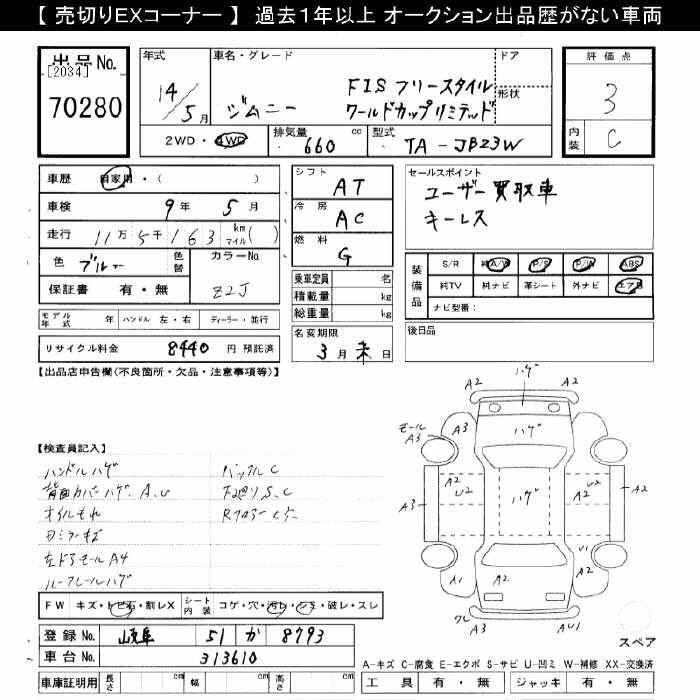 【 売切りEXコーナー 】 過去1年以上 オークション出品歴がない車両
出品No.
[2034]
70280
年式
14/5月
車名・グレード
ジムニー
FISフリースタイル
ワールドカップリミテッド
ドア
形状
2WD・4WD
排気量
660 cc
型式
TA-JB23W
評価点
3
内装
C
車歴 自家用・( )
車検 9年 5月
走行 11万5千163 km マイル( )
色 ブルー 色替
カラーNo. Z2J
保証書 有・無
モデル年式 年 ハンドル 左・右 ディーラー・並行
リサイクル料金 8440 円 預託済
シフト AT
冷房 AC
燃料 G
乗車定員 名
積載量 kg
総重量 kg
名変期限
3月末日
セールスポイント
ユーザー買取車
キーレス
装備品
S/R 純A/W P/S P/W ABS
純TV 純ナビ 革シート 外ナビ エアB
ナビ型番：
後日品
【出品店申告欄(不良箇所・欠品・注意事項等)】
【検査員記入】
ハンドルハゲ
背面カバーハゲ、A、U
オイルモれ
ルーフレールハゲ
左ドアモールA4
バックルC
下廻りS、C
FW キズ・トビ石・割レX
シート内装 コゲ・穴・汚レ・シミ・破レ・スレ
登録No. 岐阜 51 か 8793
車台No. 313610
車庫証明用 長さ cm 幅 cm 高さ cm
A2
ハゲ
A2
モール
A3
A3
ハゲ
A3
A2
U2
ハゲ
A2
U2
A3
A2
U1
A2
A1
A2
ワレ
A3
AU1
スペア
A-キズ C-腐食 E-エクボ S-サビ U-凹ミ W-補修 XX-交換済
工具 有・無 ジャッキ 有・無